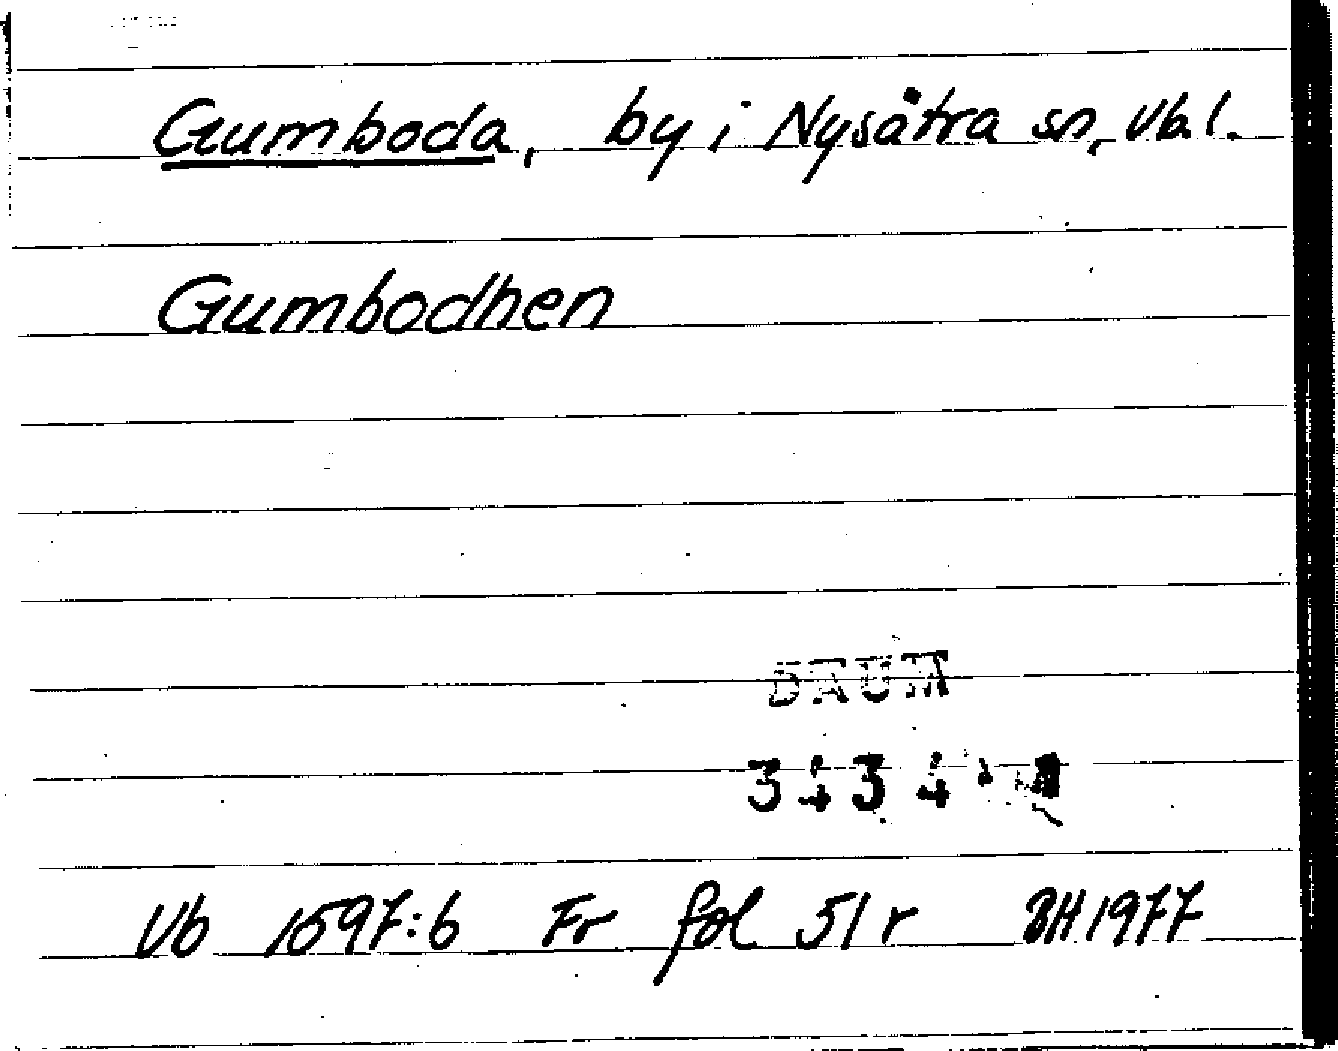 Gumboda, by i Nysätra sn, Vb.l.
Gumbodhen
DAUM
Vb 1597:6 Fr fol 51 r BH 1977